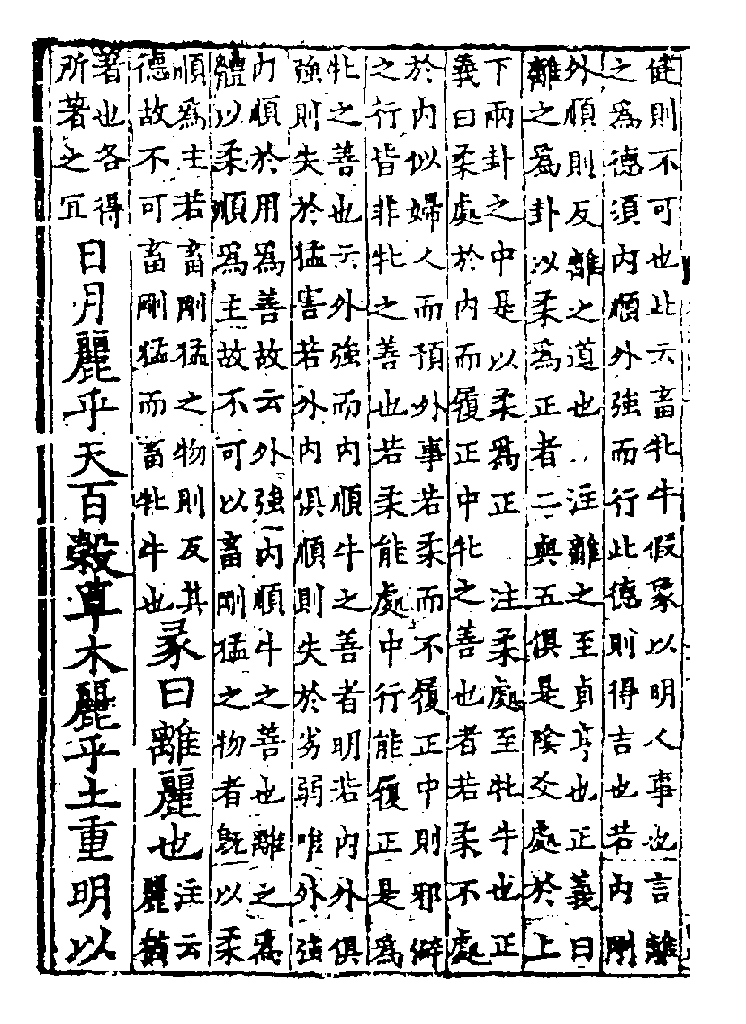 健則不可也此云畜牝牛假象以明人事也言離
之爲德須内順外強而行此德則得吉也若内剛
外順則反離之道也 注離之至貞亨也正義曰
離之爲卦以柔爲正者二與五俱是隂爻處於上
下兩卦之中是以柔爲正 注柔處至牝牛也正
義曰柔處於内而履正中牝之善也者若柔不處
於内似婦人而預外事若柔而不履正中則邪僻
之行皆非牝之善也若柔能處中行能履正是爲
牝之善也云外強而内順牛之善者明若内外俱
強則失於猛害若外内俱順則失於劣弱唯外強
内順於用爲善故云外強内順牛之善也離之爲
體以柔順爲主故不可以畜剛猛之物者旣以柔
順爲主若畜剛猛之物則反其
德故不可畜剛猛而畜牝牛也
彖曰離麗也
注云
麗猶
著也各得
所著之冝
日月麗乎天百榖草木麗乎土重明以